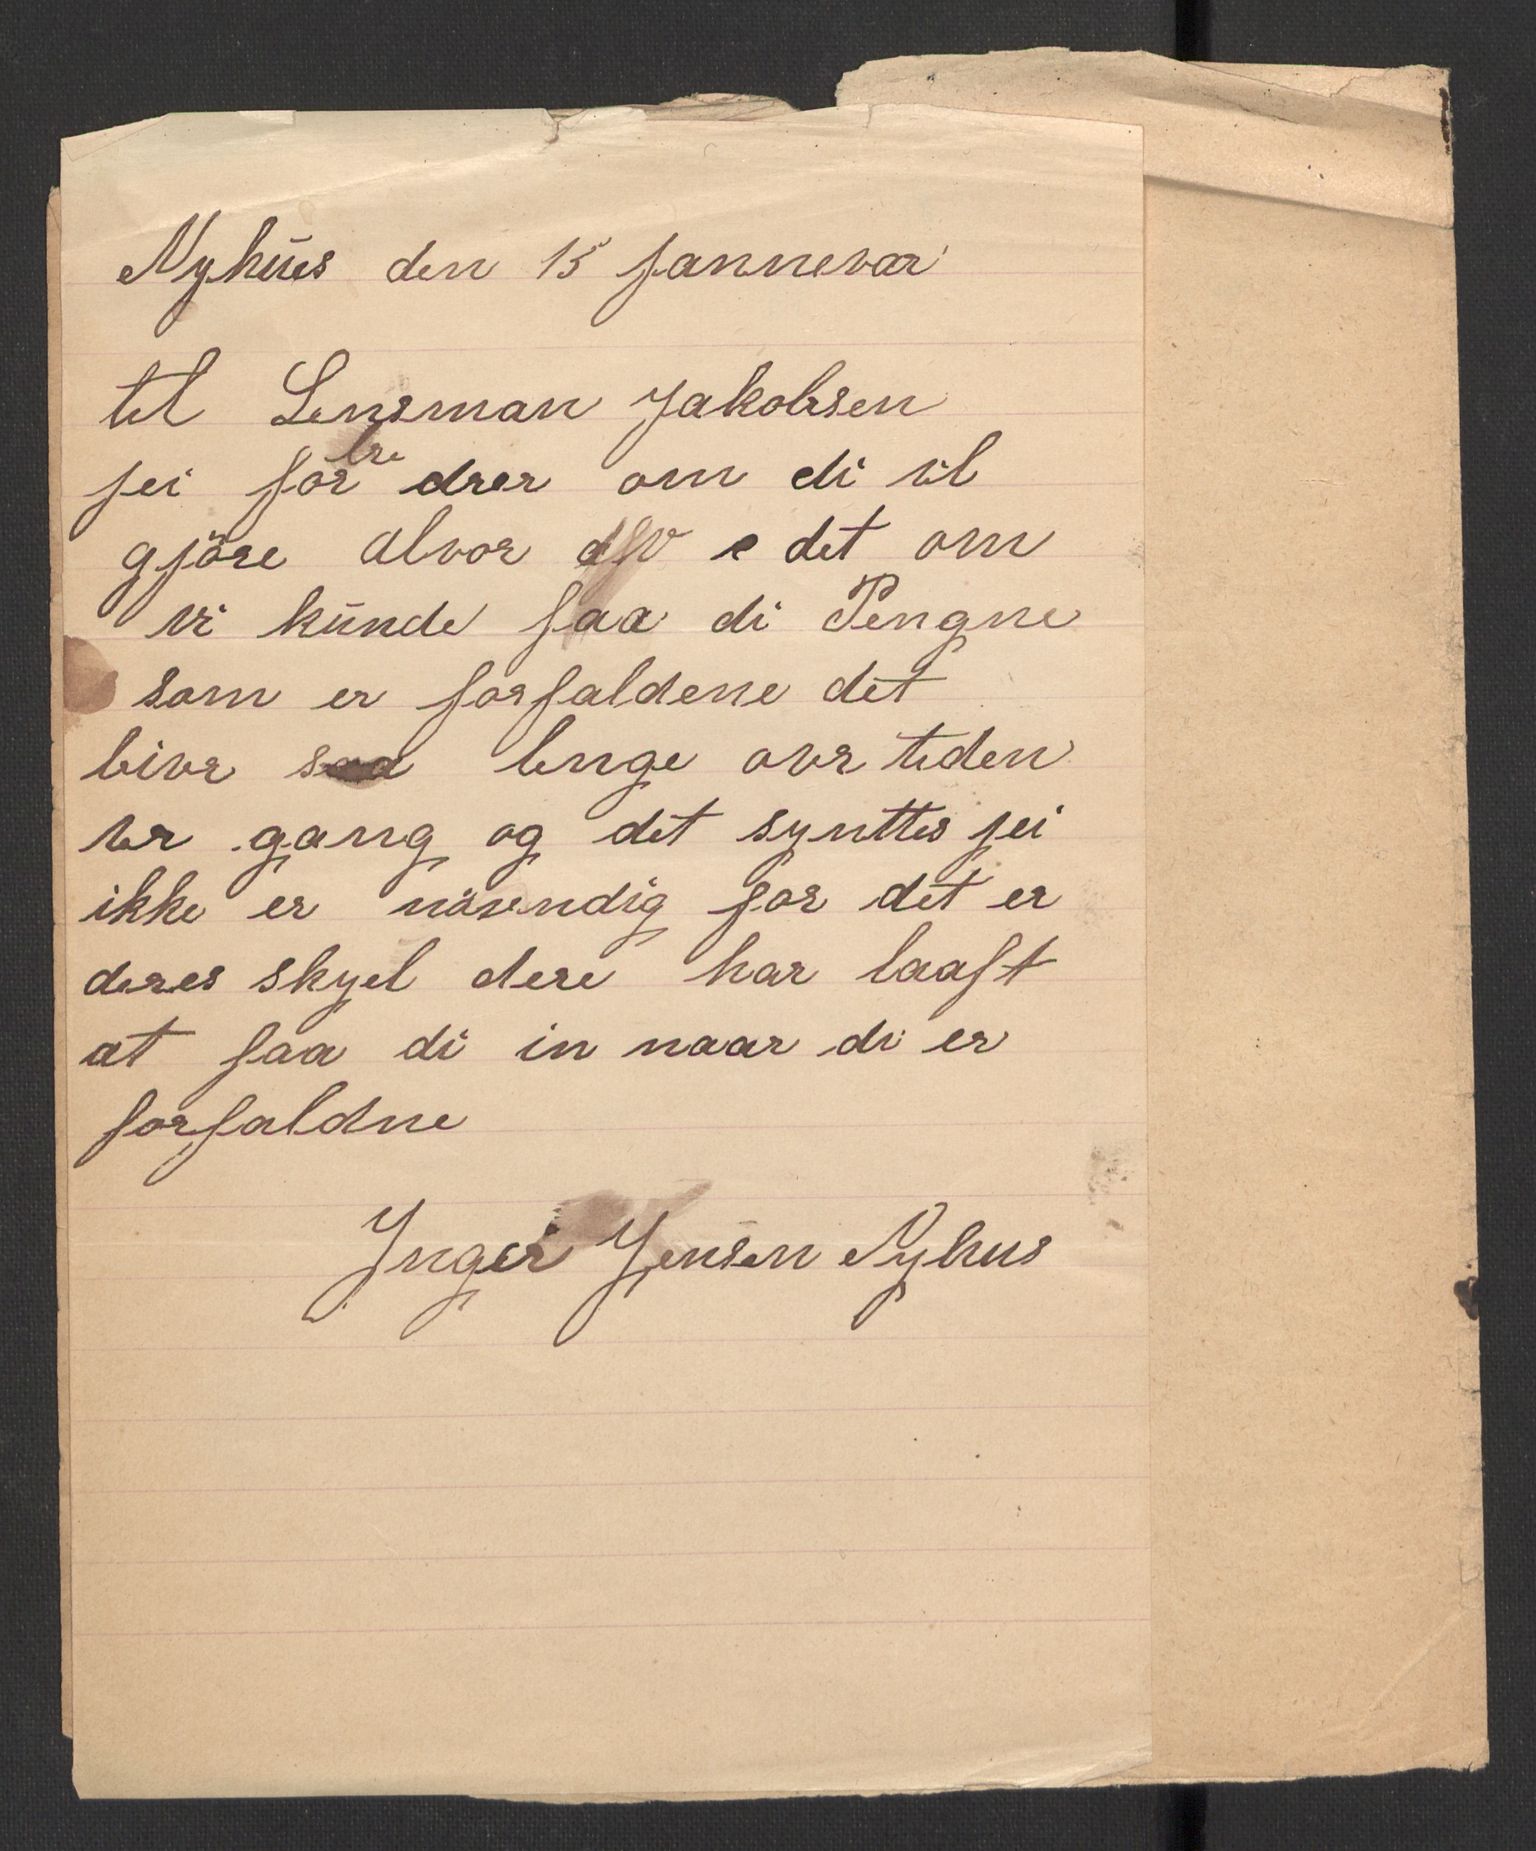 Nyhŭs den 15 Jannevar
til Lensman Jakobsen
jei for drer om di vil
gjöre alvor e det om
vi kŭnde faa di Pengne
som er forfaldene det
bivr saa lenge ovr tiden
ver gang og det synttes jei
ikke er növendig for det er
deres skyel dere har laaft
at faa di in naar di er
forfaldne
Inger Jensen Nyhus